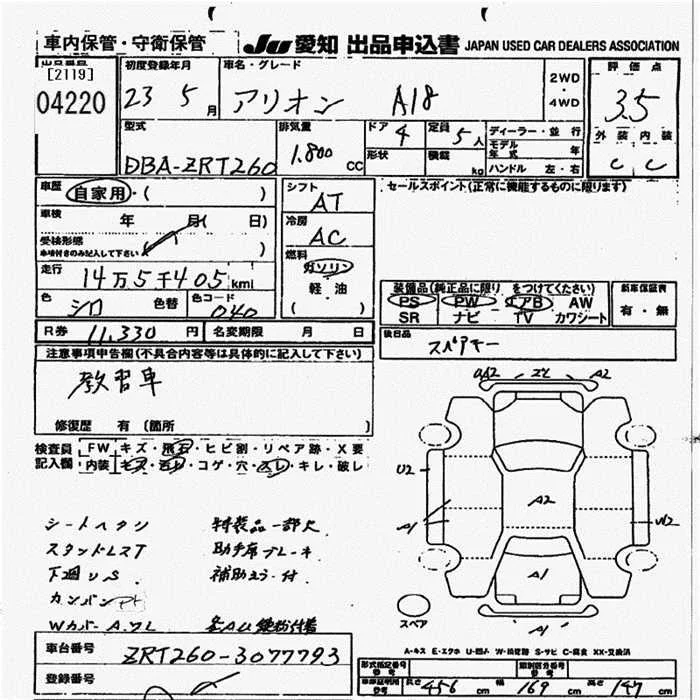 車内保管・守衛保管
JU 愛知 出品申込書 JAPAN USED CAR DEALERS ASSOCIATION
出品番号
[2119]
04220
初度登録年月
23 5 月
車名・グレード
アリオン A18
2WD
・
4WD
評価点
3.5
外装 内装
C C
型式
DBA-ZRT260
排気量
1.800 CC
ドア 4
形状
定員 5人
積載 kg
ディーラー・並行
モデル年式 年
ハンドル 左・右
車歴 自家用・( )
車検 年 月( 日)
受検形態
車検付きのみ記入して下さい
走行 14万5千405 kmi
色 シロ 色替 色コード 040
シフト
AT
冷房
AC
燃料
ガソリン
軽・油
( )
セールスポイント(正常に機能するものに限ります)
装備品(純正品に限り をつけてください)
PS PW エアB AW
SR ナビ TV カワシート
新車保証書
有・無
R券 11,330 円 名変期限 月 日
後日品
スペアキー
注意事項申告欄(不具合内容等は具体的に記入して下さい)
教習車
修復歴 有 (箇所 )
検査員 FW キズ・飛石・ヒビ割・リペア跡・X要
記入欄 内装 キズ・汚れ・コゲ・穴・スレ・キレ・破レ
シートヘタリ 特装品一部欠
スタッドレスT 助手席ブレーキ
下廻りS 補助ミラー付
カンバン
Wカバー A.ワレ
A2
U2
A2
A1
W2
A1
スペア
A1
A-キズ E-エクボ U-凹ム W-補修跡 S-サビ C-腐食 XX-交換済
車台番号 ZRT260-3077793
登録番号
形式指定番号 類別区分番号
長さ 456 cm 幅 169 cm 高さ 147 cm